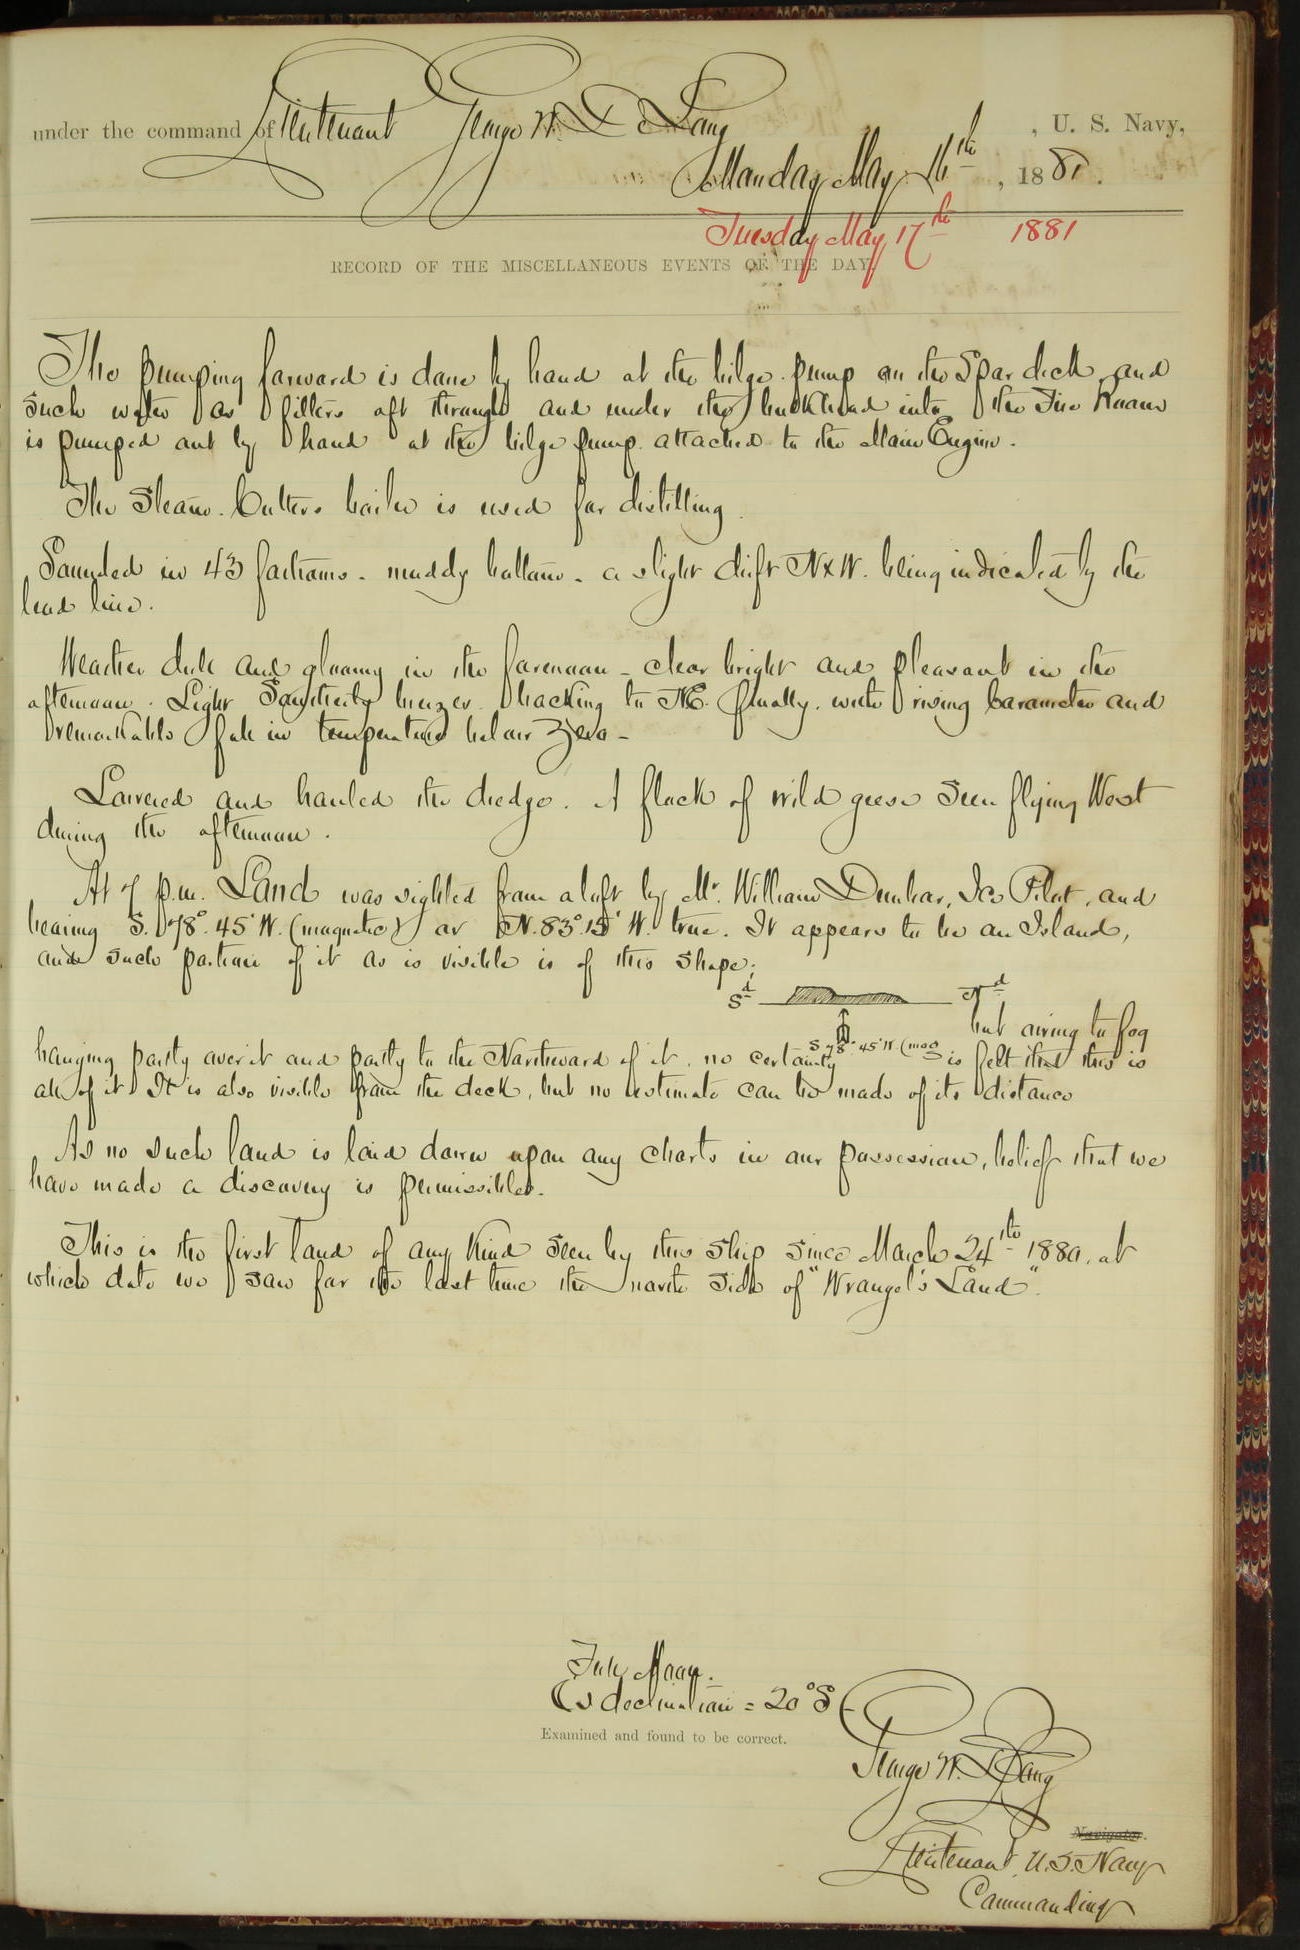 under the command of Lieutenant George W. De Long, U. S. Navy,
Monday May 16th, 1881.
Tuesday May 17th 1881
RECORD OF THE MISCELLANEOUS EVENTS OF THE DAY.
The pumping forward is done by hand at the bilge pump on the Spar deck and
such water as filters aft through and under the bulkhead into the Fire Room
is pumped out by hand at the bilge pump attached to the Main Engine.
The Steam Cutters boiler is used for distilling.
Sounded in 43 fathoms - muddy bottom - a slight drift N x W. being indicated by the
lead line.
Weather dull and gloomy in the forenoon - clear bright and pleasant in the
afternoon. Light Southerly breezes backing to NE. finally, with rising barometer and
remarkable fall in temperature below zero -
Lowered and hauled the dredge. A flock of wild geese seen flying West
during the afternoon.
At 7 p.m. Land was sighted from aloft by Mr. William Dunbar, Ice Pilot, and
bearing S. 78° 45' W. (magnetic) or N. 83° 15' W. true. It appears to be an Island,
and such portion of it as is visible is of this shape;
Sd Nd
but owing to fog
S 78° 45' W (mag
hanging partly over it and partly to the Northward of it, no certainty is felt that this is
all of it. It is also visible from the deck, but no estimate can be made of its distance
As no such land is laid down upon any charts in our possession, belief that we
have made a discovery is permissible.
This is the first land of any kind seen by this ship since March 24th 1880, at
which date we saw for the last time the north side of "Wrangel's Land".
Full Moon.
☾s declination = 20° S
Examined and found to be correct.
George W. De Long
Navigator.
Lieutenant U.S. Navy
Commanding